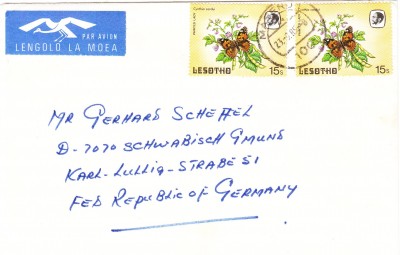 PAR AVION
LENGOLO LA MOEA
Cynthia cardui
LESOTHO 15s
Cynthia cardui
LESOTHO 15s
MR GERHARD SCHEFFEL
D-7070 SCHWABISCH GMUND
KARL-LULLIG-STRABE 51
FED REPUBLIC OF GERMANY